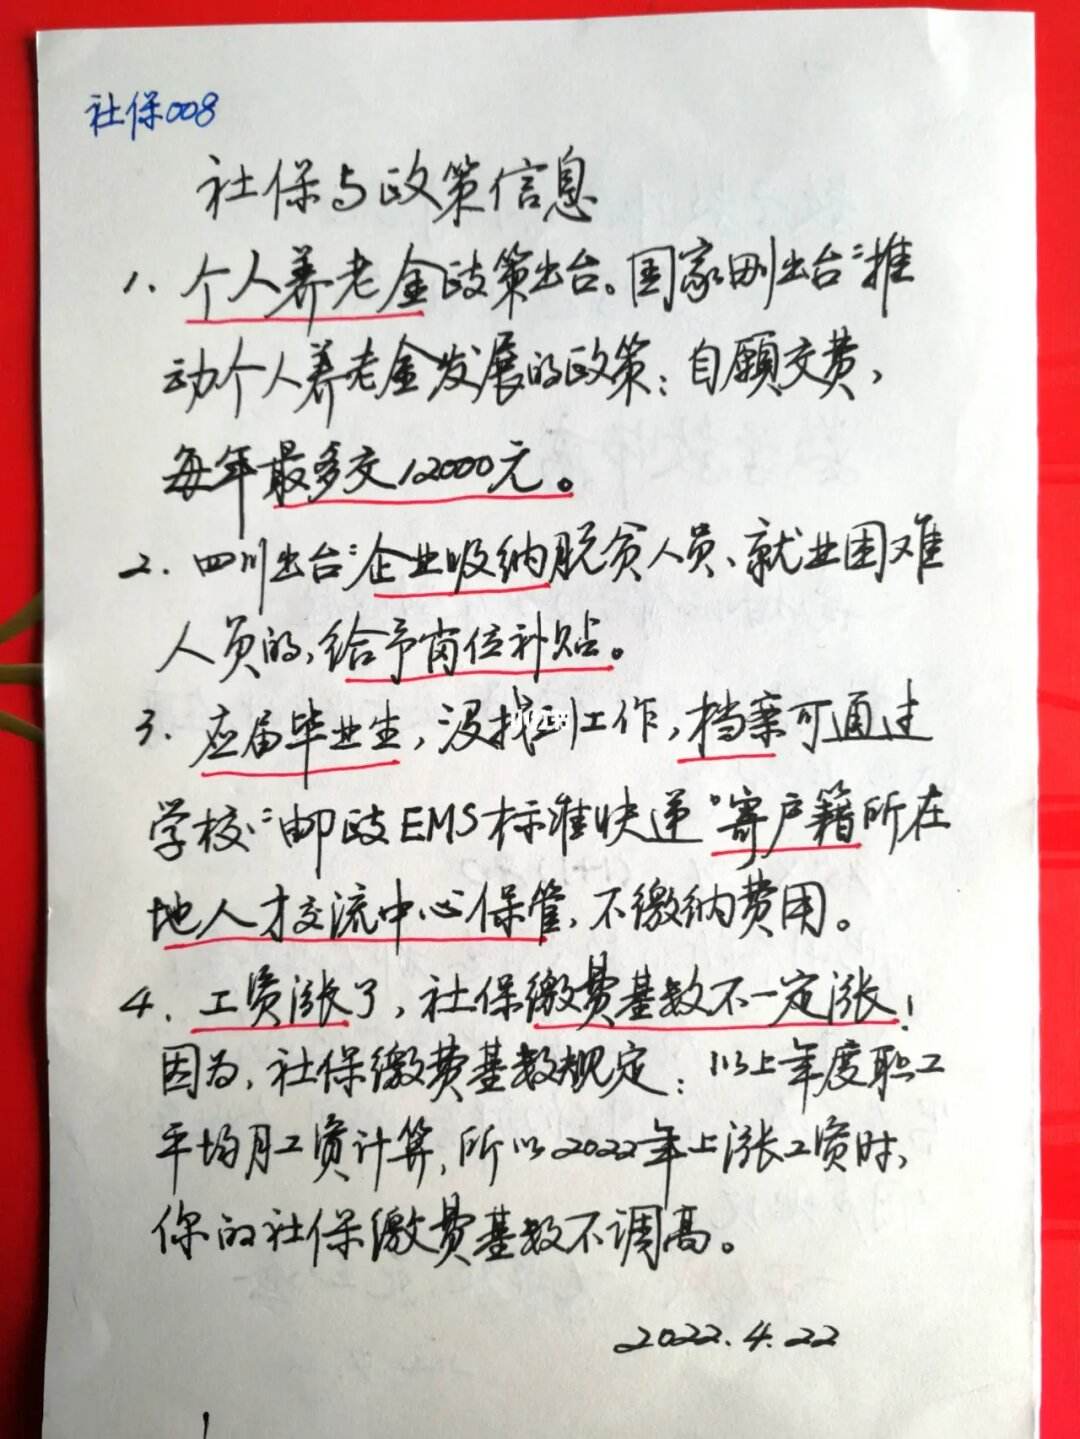 社保008
社保与政策信息
1、个人养老金政策出台。国家刚出台"推
动个人养老金发展的政策：自愿交费，
每年最多交12000元。
2、四川出台"企业吸纳脱贫人员、就业困难
人员的，给予岗位补贴。
3、应届毕业生，没找到工作，档案可通过
学校"邮政EMS标准快递"寄户籍所在
地人才交流中心保管，不缴纳费用。
4、工资涨了，社保缴费基数不一定涨！
因为，社保缴费基数规定：以上年度职工
平均月工资计算，所以2022年上涨工资时，
你的社保缴费基数不调高。
2022.4.22